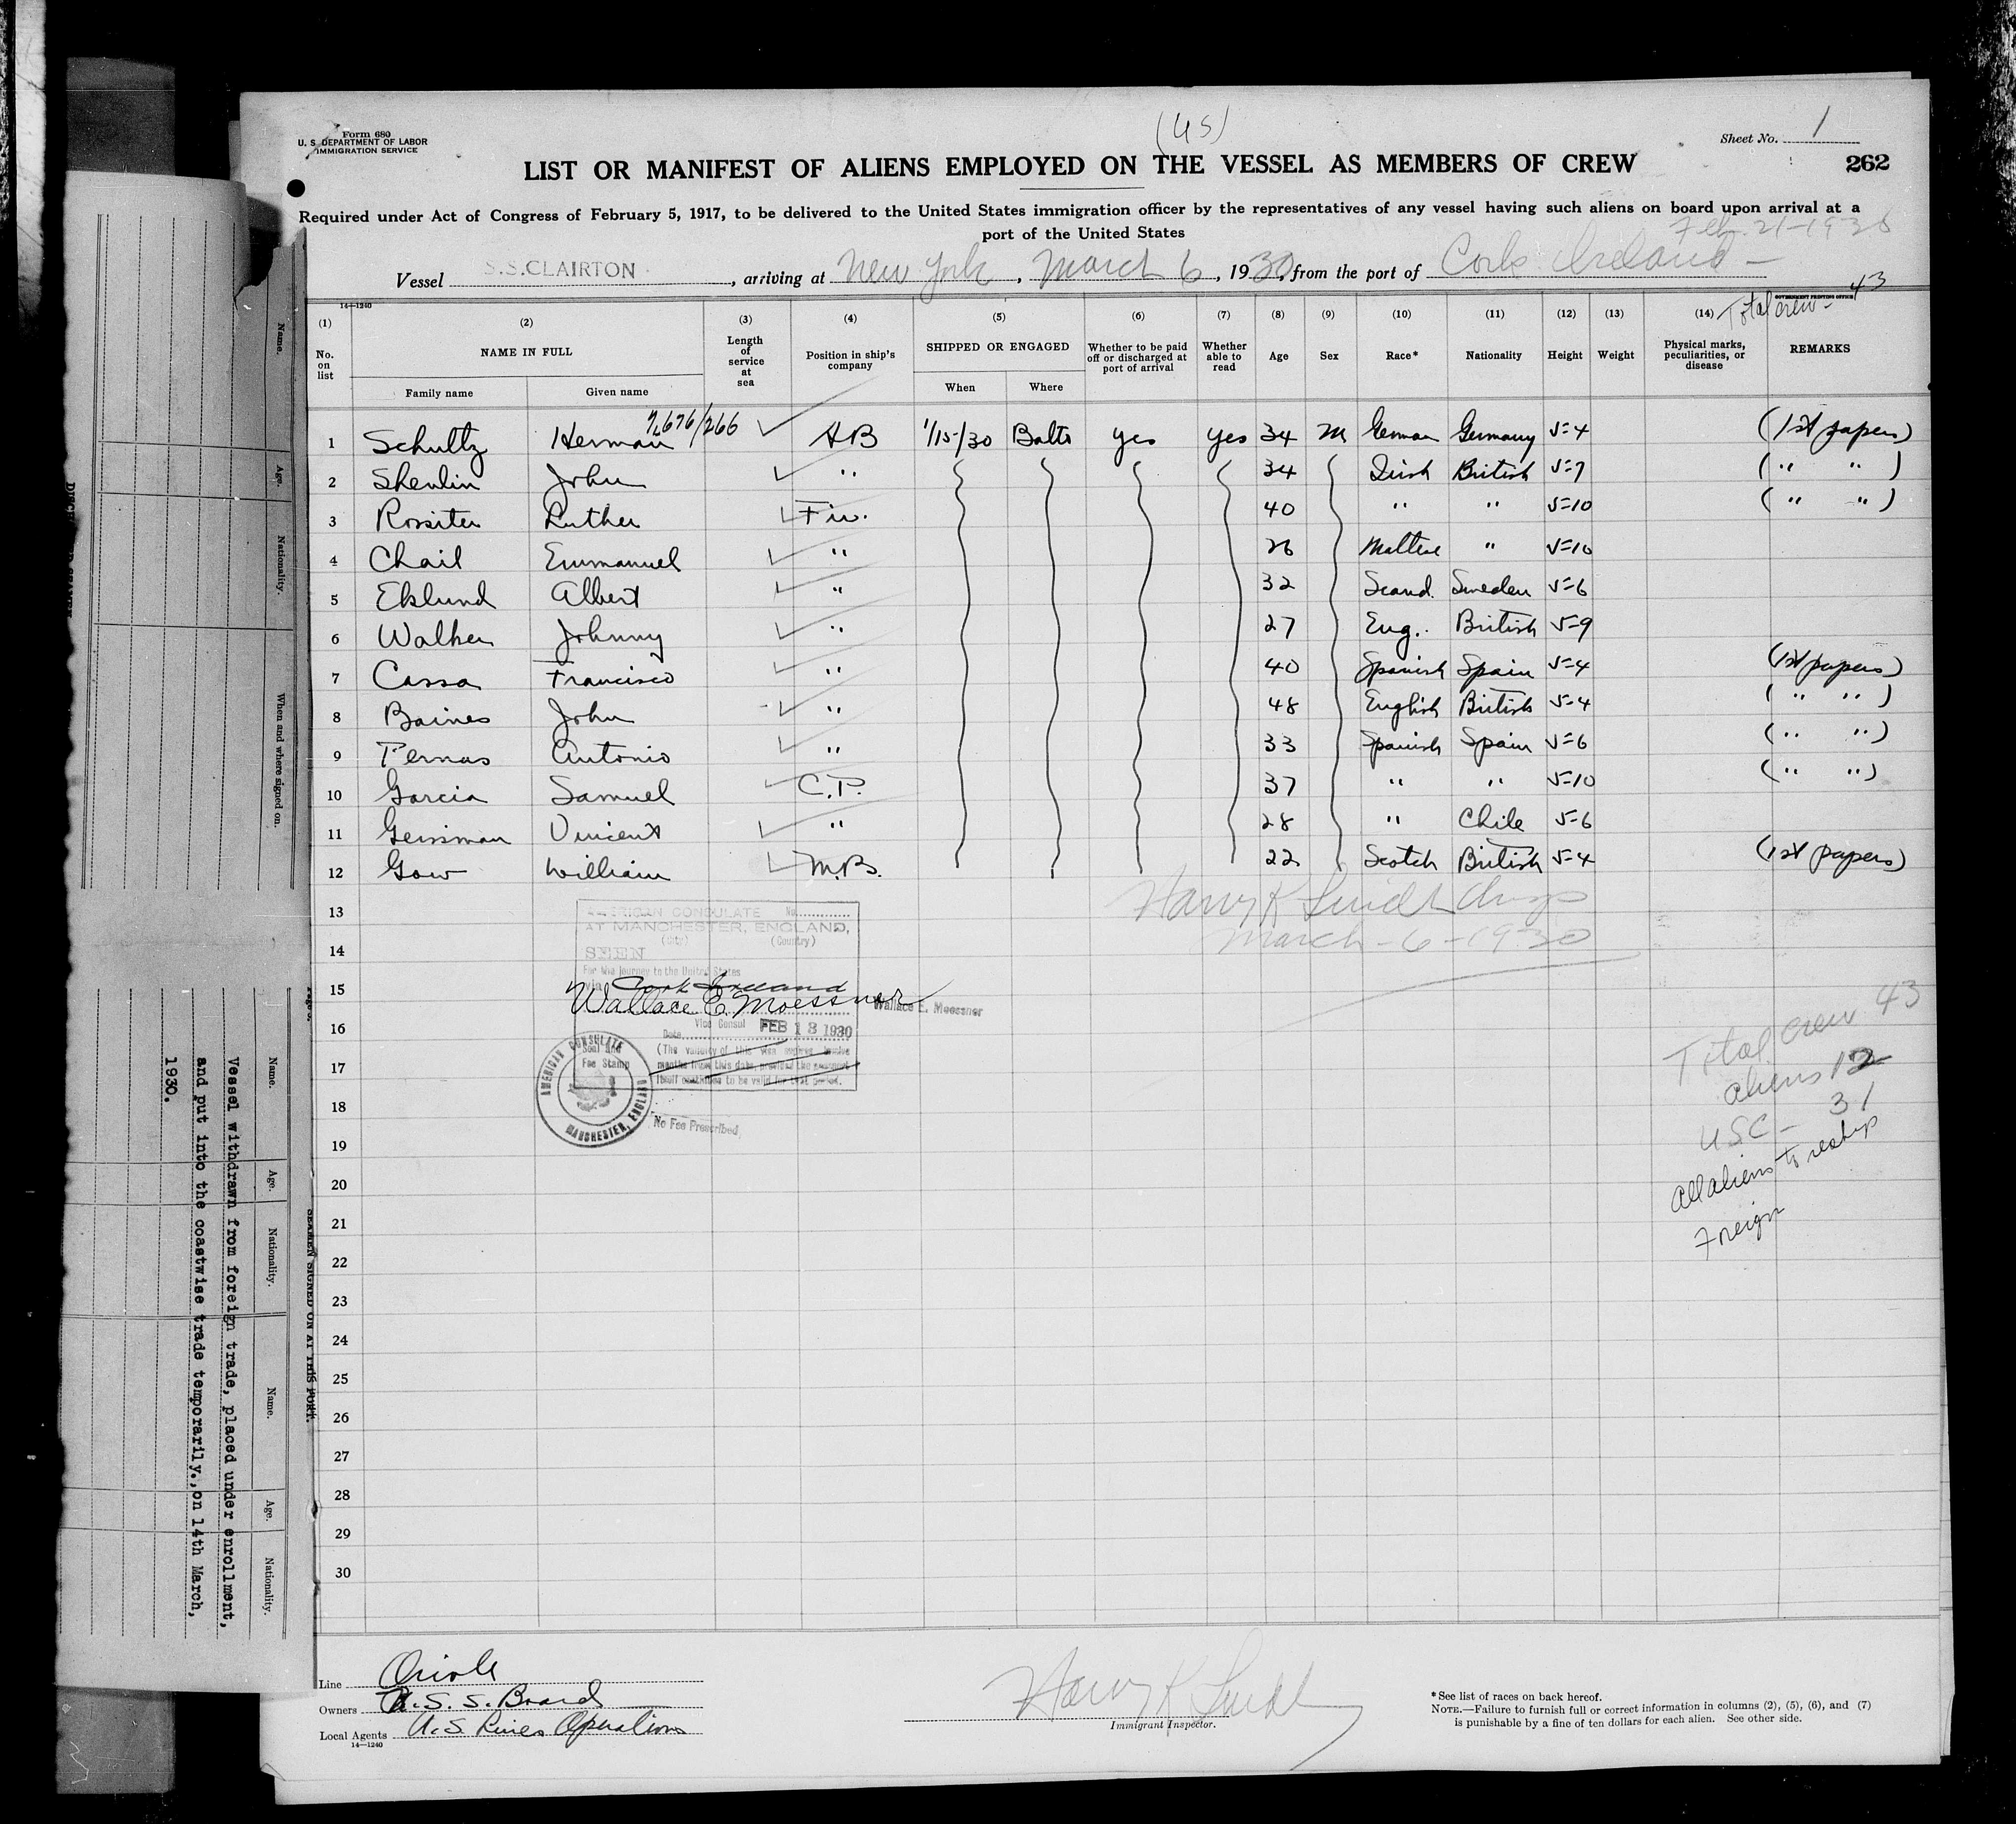 Form 680
U. S. DEPARTMENT OF LABOR
IMMIGRATION SERVICE
(US)
Sheet No. 1
LIST OR MANIFEST OF ALIENS EMPLOYED ON THE VESSEL AS MEMBERS OF CREW
262
Required under Act of Congress of February 5, 1917, to be delivered to the United States immigration officer by the representatives of any vessel having such aliens on board upon arrival at a
port of the United States
Feb. 21-1930
Vessel S.S.CLAIRTON, arriving at New York, March 6, 1930, from the port of Cork Ireland -
14-1240
GOVERNMENT PRINTING OFFICE
Total crew - 43
(1) (2) (3) (4) (5) (6) (7) (8) (9) (10) (11) (12) (13) (14)
No. on list NAME IN FULL Length of service at sea Position in ship's company SHIPPED OR ENGAGED Whether to be paid off or discharged at port of arrival Whether able to read Age Sex Race* Nationality Height Weight Physical marks, peculiarities, or disease REMARKS
Family name Given name When Where
1 Schultz Herman 7/676/266 AB 1/15/30 Balto yes yes 34 M German Germany 5=4 (1st papers)
2 Shenlin John " 34 Irish British 5=7 ( " " )
3 Rossiter Luther Fiw. 40 " " 5=10 ( " " )
4 Chail Emmanuel " 26 Maltese " 5=10
5 Eklund Albert " 32 Scand. Sweden 5=6
6 Walker Johnny " 27 Eng. British 5=9
7 Cassa Francisco " 40 Spanish Spain 5=4 (1st papers)
8 Baines John " 48 English British 5=4 ( " " )
9 Pernas Antonio " 33 Spanish Spain 5=6 ( " " )
10 Garcia Samuel C.P. 37 " " 5=10 ( " " )
11 Geissman Vincent " 28 " Chile 5=6
12 Gow William M.B. 22 Scotch British 5=4 (1st papers)
13
14
15
16
17
18
19
20
21
22
23
24
25
26
27
28
29
30
Harry K
March-6-1930
AMERICAN CONSULATE No.
AT MANCHESTER, ENGLAND,
(City) (Country)
SEEN
For the journey to the United States
via Cork Ireland
Wallace E. Moessner
Wallace E. Moessner
Vice Consul
Date FEB 18 1930
Seal and
Fee Stamp
(The validity of this visa expires twelve
months from this date, provided the passport
itself continues to be valid for that period.
AMERICAN CONSULATE
MANCHESTER, ENGLAND
No Fee Prescribed
Total crew 43
aliens 12
USC - 31
All aliens to reship
Foreign
Line Oriole
Owners U.S.S. Board
Local Agents U.S. Lines Operations
14-1240
Harry K
Immigrant Inspector.
* See list of races on back hereof.
NOTE.—Failure to furnish full or correct information in columns (2), (5), (6), and (7)
is punishable by a fine of ten dollars for each alien. See other side.
Name.
Age.
Nationality.
When and where signed on.
SEAMEN SIGNED ON AT THIS PORT.
Name.
Age.
Nationality.
Name.
Age.
Nationality.
Vessel withdrawn from foreign trade, placed under enrollment,
and put into the coastwise trade temporarily., on 14th March,
1930.